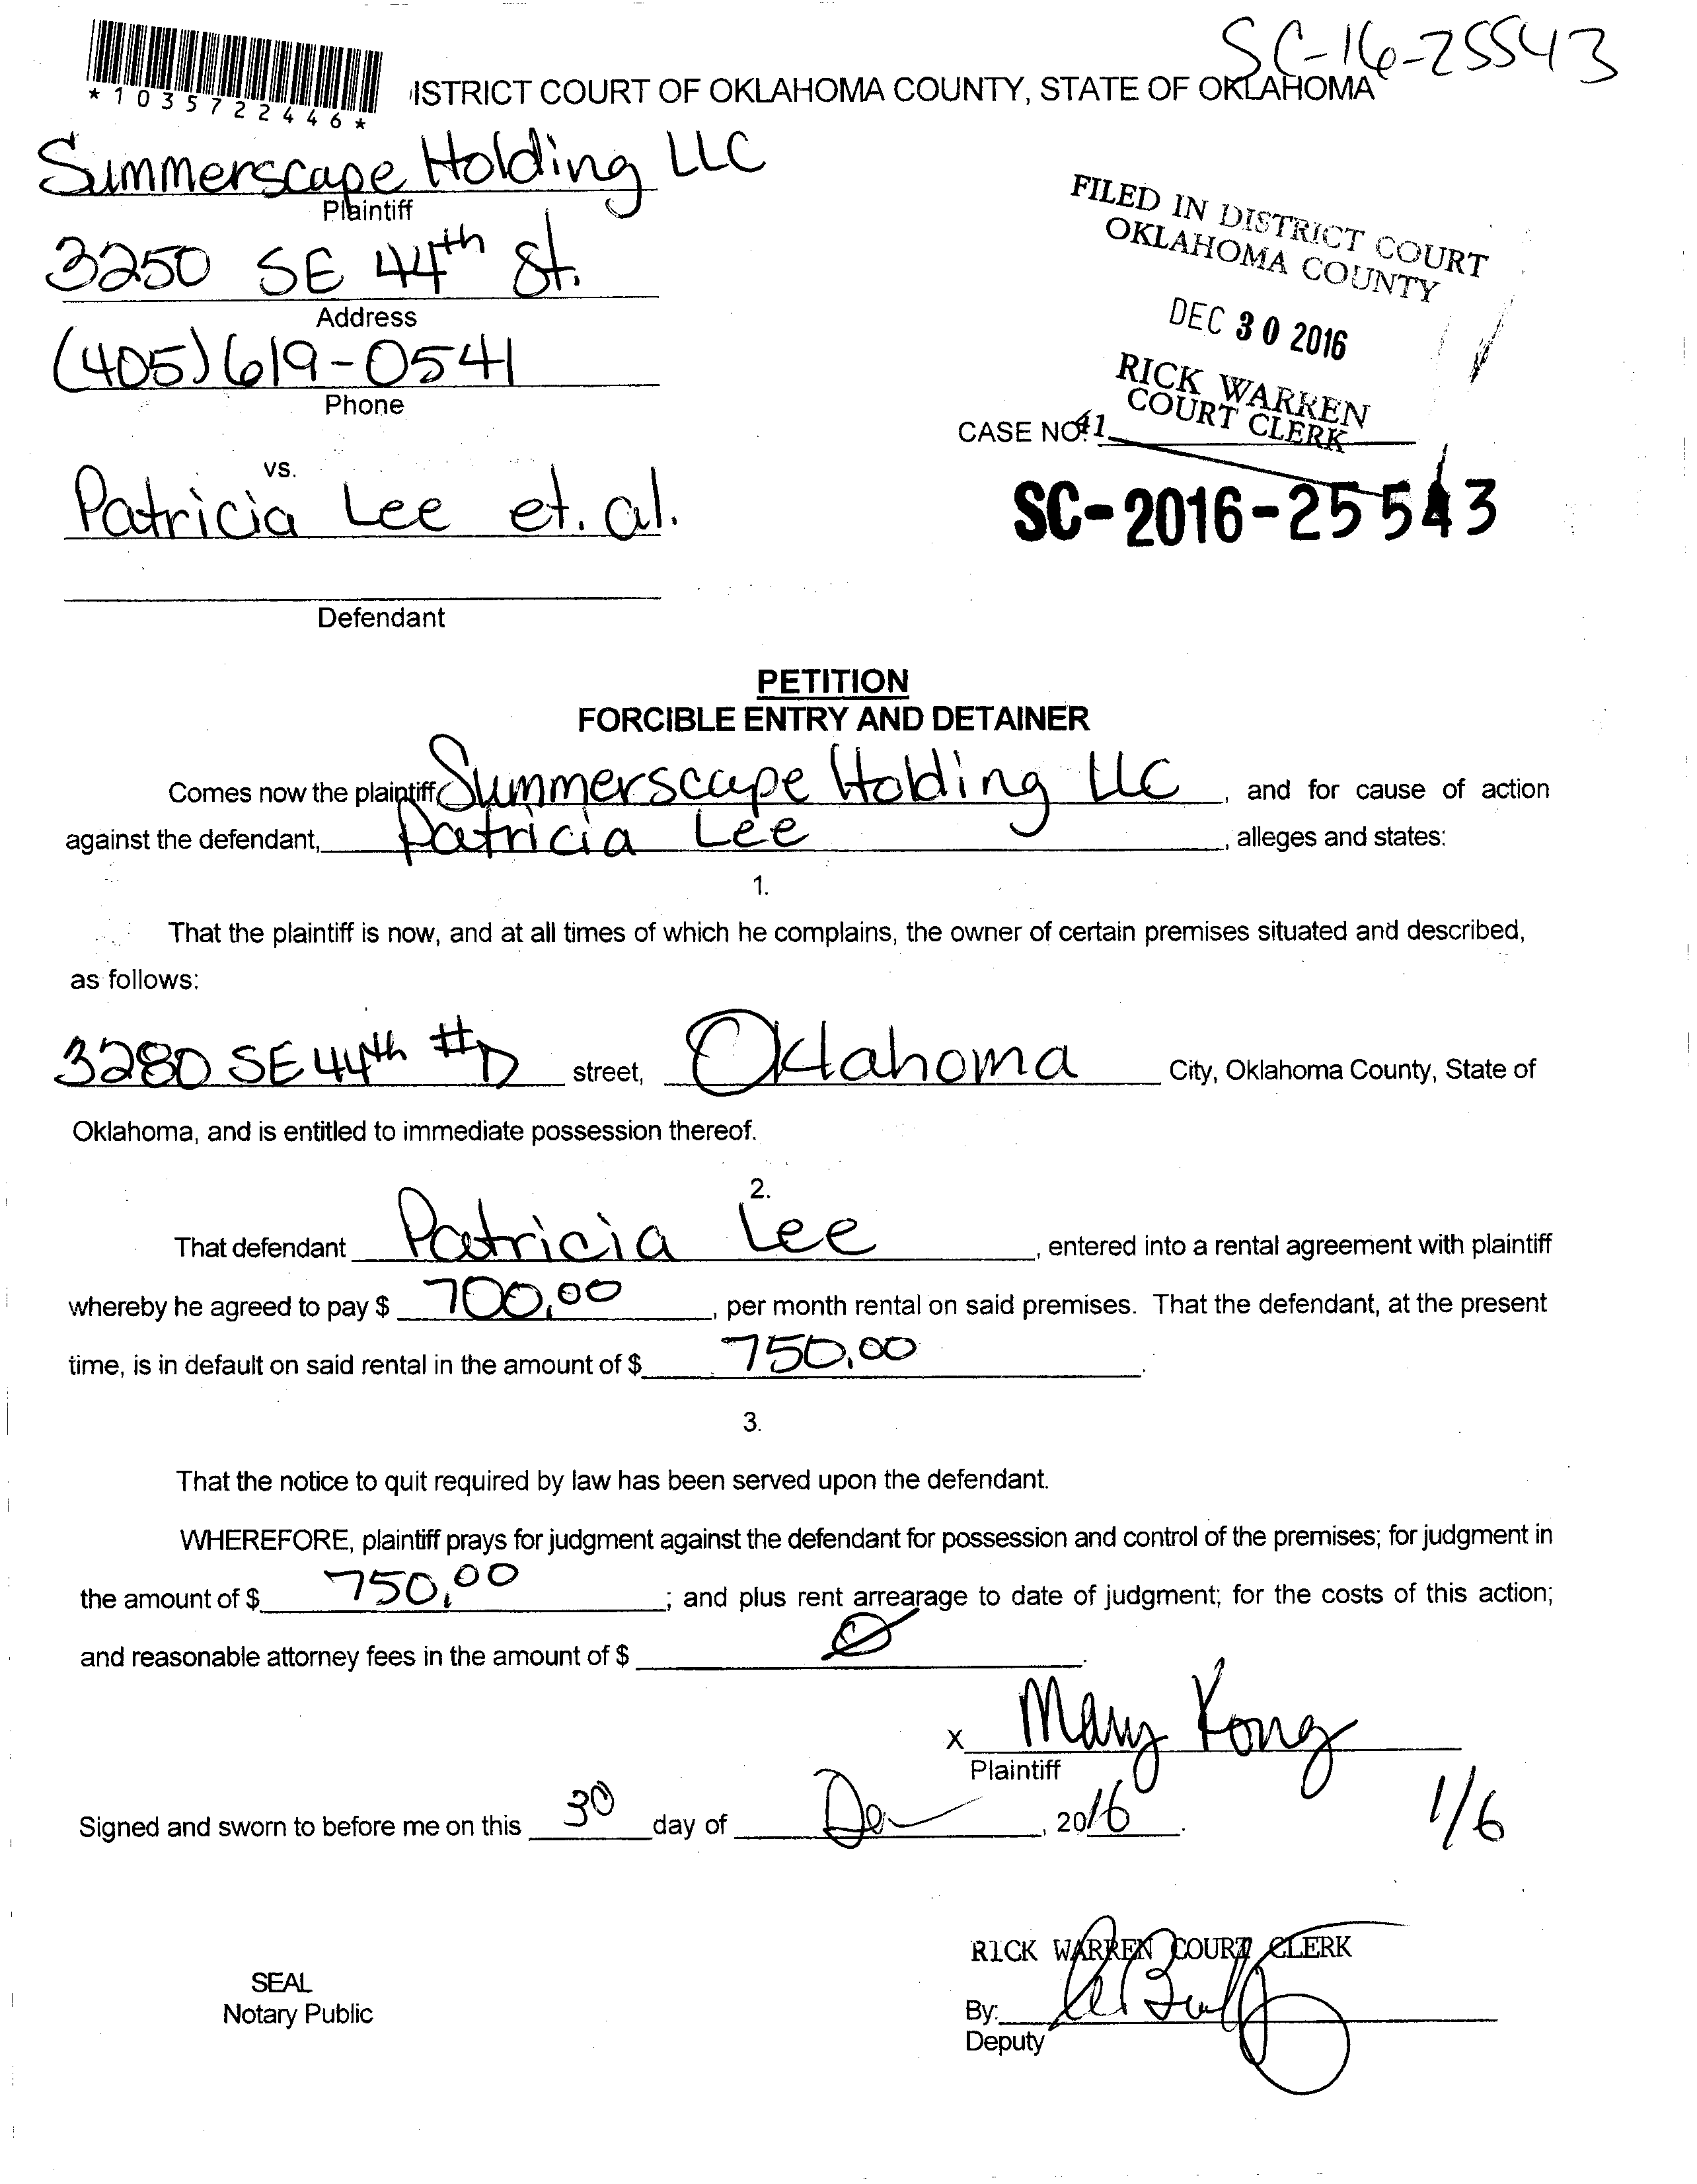 SC-16-25543
*1035722446*
ISTRICT COURT OF OKLAHOMA COUNTY, STATE OF OKLAHOMA
Summerscape Holding LLC
Plaintiff
3250 SE 44th St.
Address
(405) 619-0541
Phone
FILED IN DISTRICT COURT
OKLAHOMA COUNTY
DEC 30 2016
RICK WARREN
COURT CLERK
CASE NO. 41
SC-2016-25543
vs.
Patricia Lee et. al.
Defendant
PETITION
FORCIBLE ENTRY AND DETAINER
Comes now the plaintiff Summerscape Holding LLC, and for cause of action
against the defendant, Patricia Lee, alleges and states:
1.
That the plaintiff is now, and at all times of which he complains, the owner of certain premises situated and described,
as follows:
3280 SE 44th #D street, Oklahoma City, Oklahoma County, State of
Oklahoma, and is entitled to immediate possession thereof.
2.
That defendant Patricia Lee, entered into a rental agreement with plaintiff
whereby he agreed to pay $ 700.00, per month rental on said premises. That the defendant, at the present
time, is in default on said rental in the amount of $ 750.00.
3.
That the notice to quit required by law has been served upon the defendant.
WHEREFORE, plaintiff prays for judgment against the defendant for possession and control of the premises; for judgment in
the amount of $ 750.00; and plus rent arrearage to date of judgment; for the costs of this action;
and reasonable attorney fees in the amount of $ Ø.
X Mary Kong
Plaintiff
Signed and sworn to before me on this 30 day of De, 2016.
1/6
RICK WARREN COURT CLERK
SEAL
Notary Public
By:
Deputy